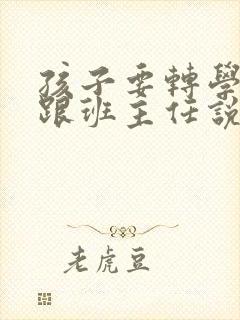 孩子要轉學
跟班主任說
老虎豆